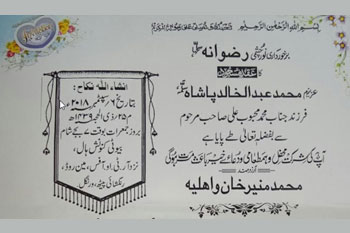 بسم اللہ الرحمٰن الرحیم
برخورداری نورچشمی رضوانہ سلمہا
کا
عقد مسعود
عزیزم محمد عبدالخالد پاشاہ سلمہ
فرزند جناب محمد محبوب علی صاحب مرحوم
سے بفضل تعالیٰ طے پایا ہے
آپ کی شرکت محفل و طعامی و دعائے خیر باعث مسرت ہوگی
محمد منیر خان و اہلیہ
انشاء اللہ نکاح:
بتاریخ ۶؍ سپٹمبر ۲۰۱۸
م ۲۵؍ ذی الحجہ ۱۴۳۹ھ
بروز جمعرات بوقت ۷ بجے شام
بیوٹی کنونشن ہال،
نزد آر ٹی او آفس، مین روڈ،
رنگشائی پیٹھ، ورنگل